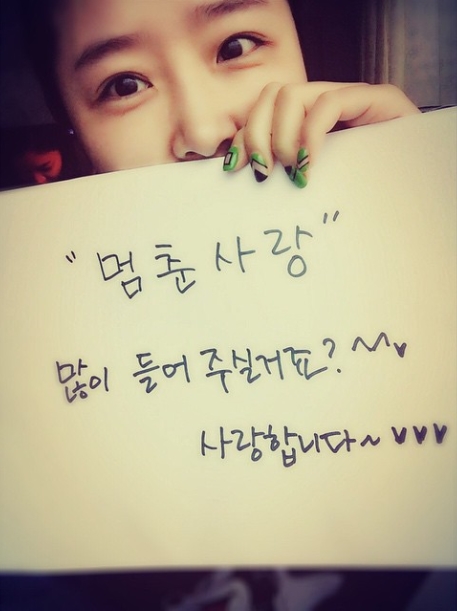 "멈춘사랑"
많이 들어 주실거죠? ^^♥
사랑합니다~ ♥♥♥